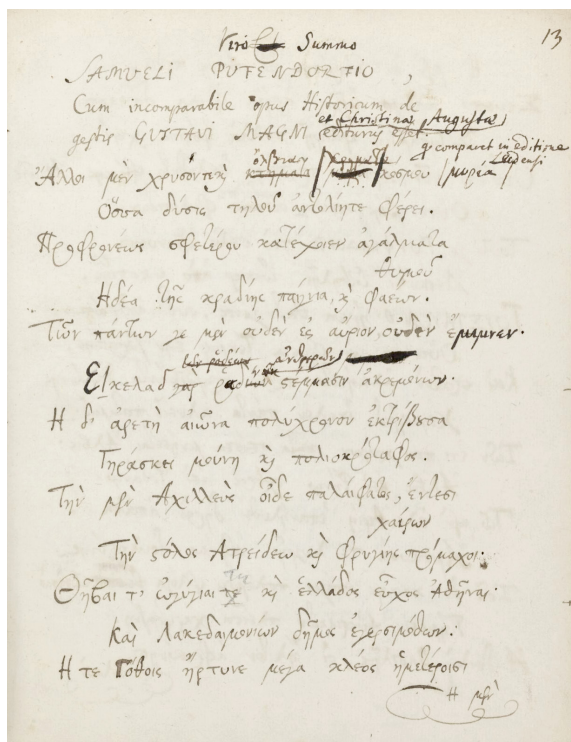 Viro Summo
13
SAMUELI PUFENDORFIO,
Cum incomparabile opus Historicum de
et Christinæ Augustæ
gestis GUSTAVI MAGNI editurus esset.
q comparet in editione
Leidensi
Ἄλλοι μὲν χρυσοῦ κτήματα κόσμου μυρία
Ὅσσα δύσις τηλοῦ ἀντολίη τε φέρει.
Προφρονέως σφετέρου κατέχοιεν ἀγάλματα
θυμοῦ
Ἡδέα τῆς κραδίης παίγνια, κ φαέων.
Τῶν πάντων γε μὲν οὐδὲν ἐς αὔριον, οὐδὲν ἔμιμνεν.
Εἴκελα ῥοδίνων στέμμασιν ἀκρεμόνων.
Η δ' ἀρετὴ αἰῶνα πολύχρονον ἐκτρίβουσα
Γηράσκει μούνη κ πολιοκρόταφος.
Τὴν μὲν Αχιλλεὺς οἶδε παλαίφατος, ἔντεσι
χαίρων
Τὴν στόλος Ατρείδεω κ Φρυγίης πρόμαχοι.
Θῆβαι τ' ὠγύγιαι τε κ Ἑλλάδος εὖχος Ἀθῆναι.
Καὶ Λακεδαιμονίων δῆμος ἐγερσιμόθων.
Η τε Γότθοις ἤρτυνε μέγα κλέος ἡμετέροισι
Η μὲν